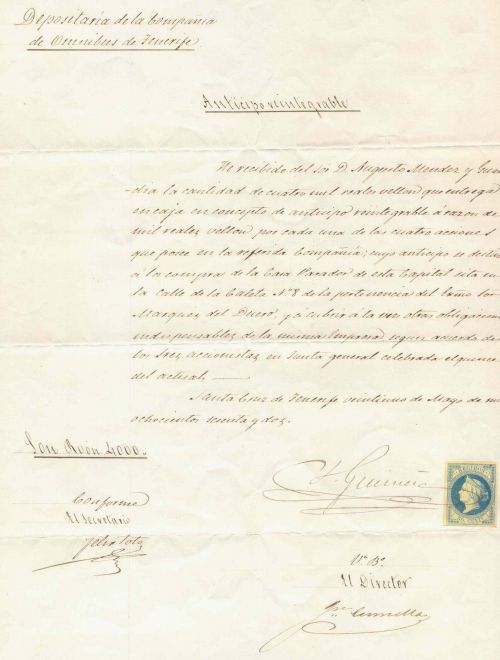 Depositaria de la Compañia
de Omnibus de Tenerife
Anticipo reintegrable
He recibido del Sor D. Augusto Mendez y
-dia la cantidad de cuatro mil reales vellon que entrega
en caja en concepto de anticipo reintegrable á razon de
mil reales vellon por cada una de las cuatro acciones
que posee en la referida Compañia; cuyo anticipo se
á la compra de la Casa Parador de esta Capital sita en
la Calle de la Caleta N.º 8 de la pertenencia del Exmo Sor
Marques del Duero, y á cubrir á la vez otras
indispensables de la misma Empresa, segun acuerdo de
los Sres accionistas en Junta general celebrada el quince
del actual.
Santa Cruz de Tenerife veintiuno de Mayo de mil
ochocientos sesenta y dos.
Son Rvon 4000.
Conforme
El Secretario
V.º B.º
El Director